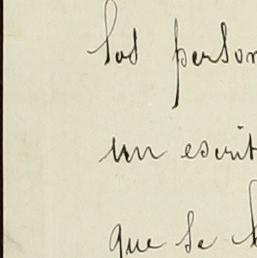 Los person
un escrit
que se h